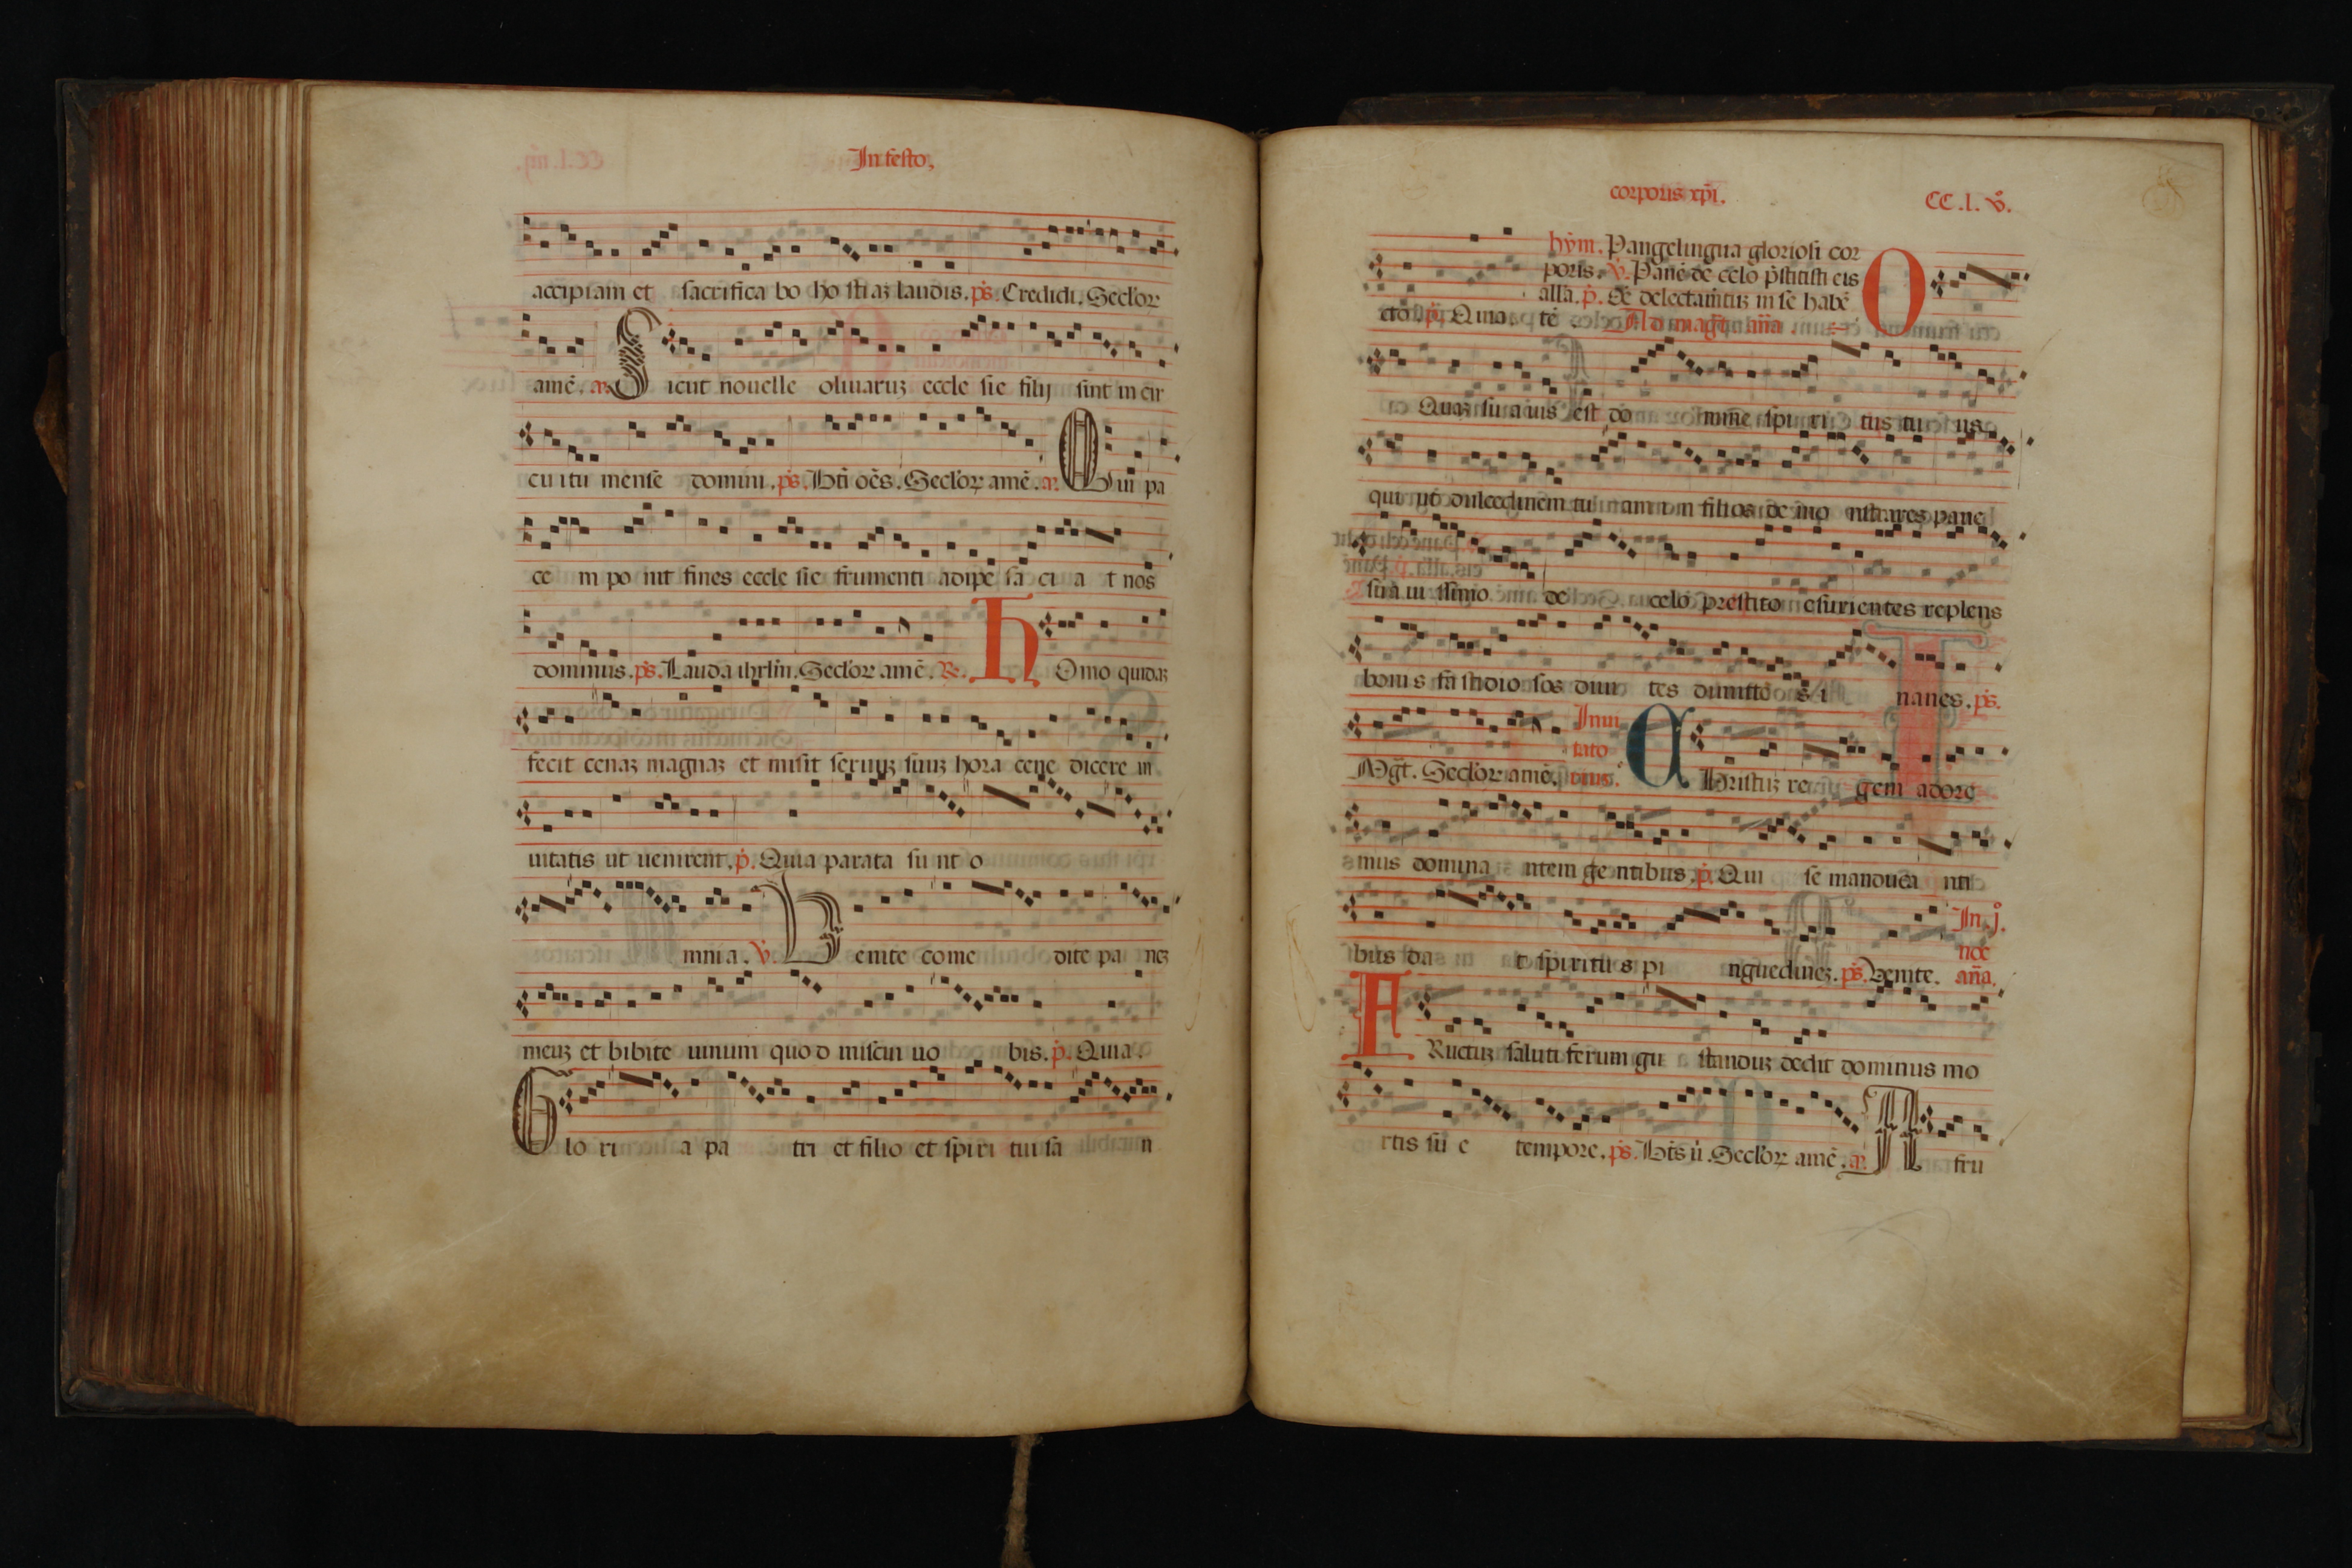 In festo,
accipiam et sacrifica bo ho stiaz laudis. ps. Credidi. Seclor
amē. a. Sicut nouelle oliuaruz eccle sie filij sint in cir
cuitu mense domini. ps. Bti oēs. Seclor amē. a. Qui pa
cem po nit fines eccle sie frumenti adipe sa ci a t nos
dominus. ps. Lauda ihrlm. Seclor amē. R. hOmo quidaz
fecit cenaz magnaz et misit seruuz suuz hora cene dicere in
uitatis ut uenirent. p. Quia parata su nt o
mnia. v. Venite come dite pa nez
meuz et bibite uinum quod miscui uo bis. p. Quia.
Glo ri a pa tri et filio et spiri tui sa n
corporis xpi. CC.l.vº.
hym. Pangelingua gloriosi cor
poris. v. Panē de celo pstitisti eis
alla. p. Oē delectamtuz in se habē
cto. p. Quia. tē Ad magt. aña
O Quaz su auis est do mine spi ri tus tu us
qui ut dulcedinem tu am in filios de mo nstrares pane
sua ui ssimo de celo prestito esurientes replens
bonis fa stidio sos diui tes dimitte s i nanes. ps.
Mgt. Seclor amē. Inui
tato
rius. CHristuz re gem adore
mus domina ntem ge ntibus. p. Qui se manduca nti
bus da t spiritu s pi nguedinez. ps. Venite. In .jº.
noc
aña.
FRuctuz saluti ferum gu standuz dedit dominus mo
rtis su e tempore. ps. Bts ū. Seclor amē. a. A fru